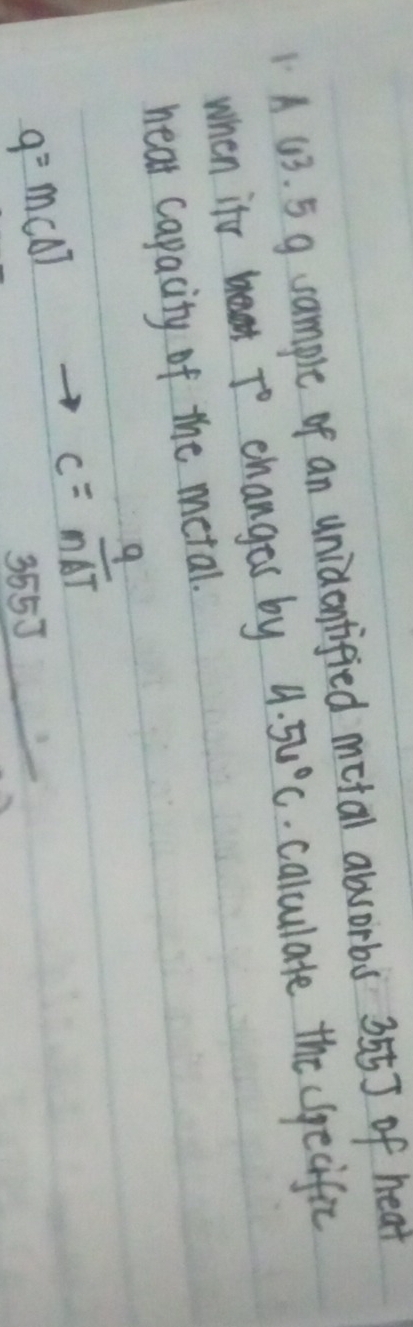 1. A 63.5 g sample of an unidentified metal absorbs 355J of heat
when its T° changes by 4.56°C. Calculate the specific
heat capacity of the metal.
q = mcΔT → c = q/mΔT
355J